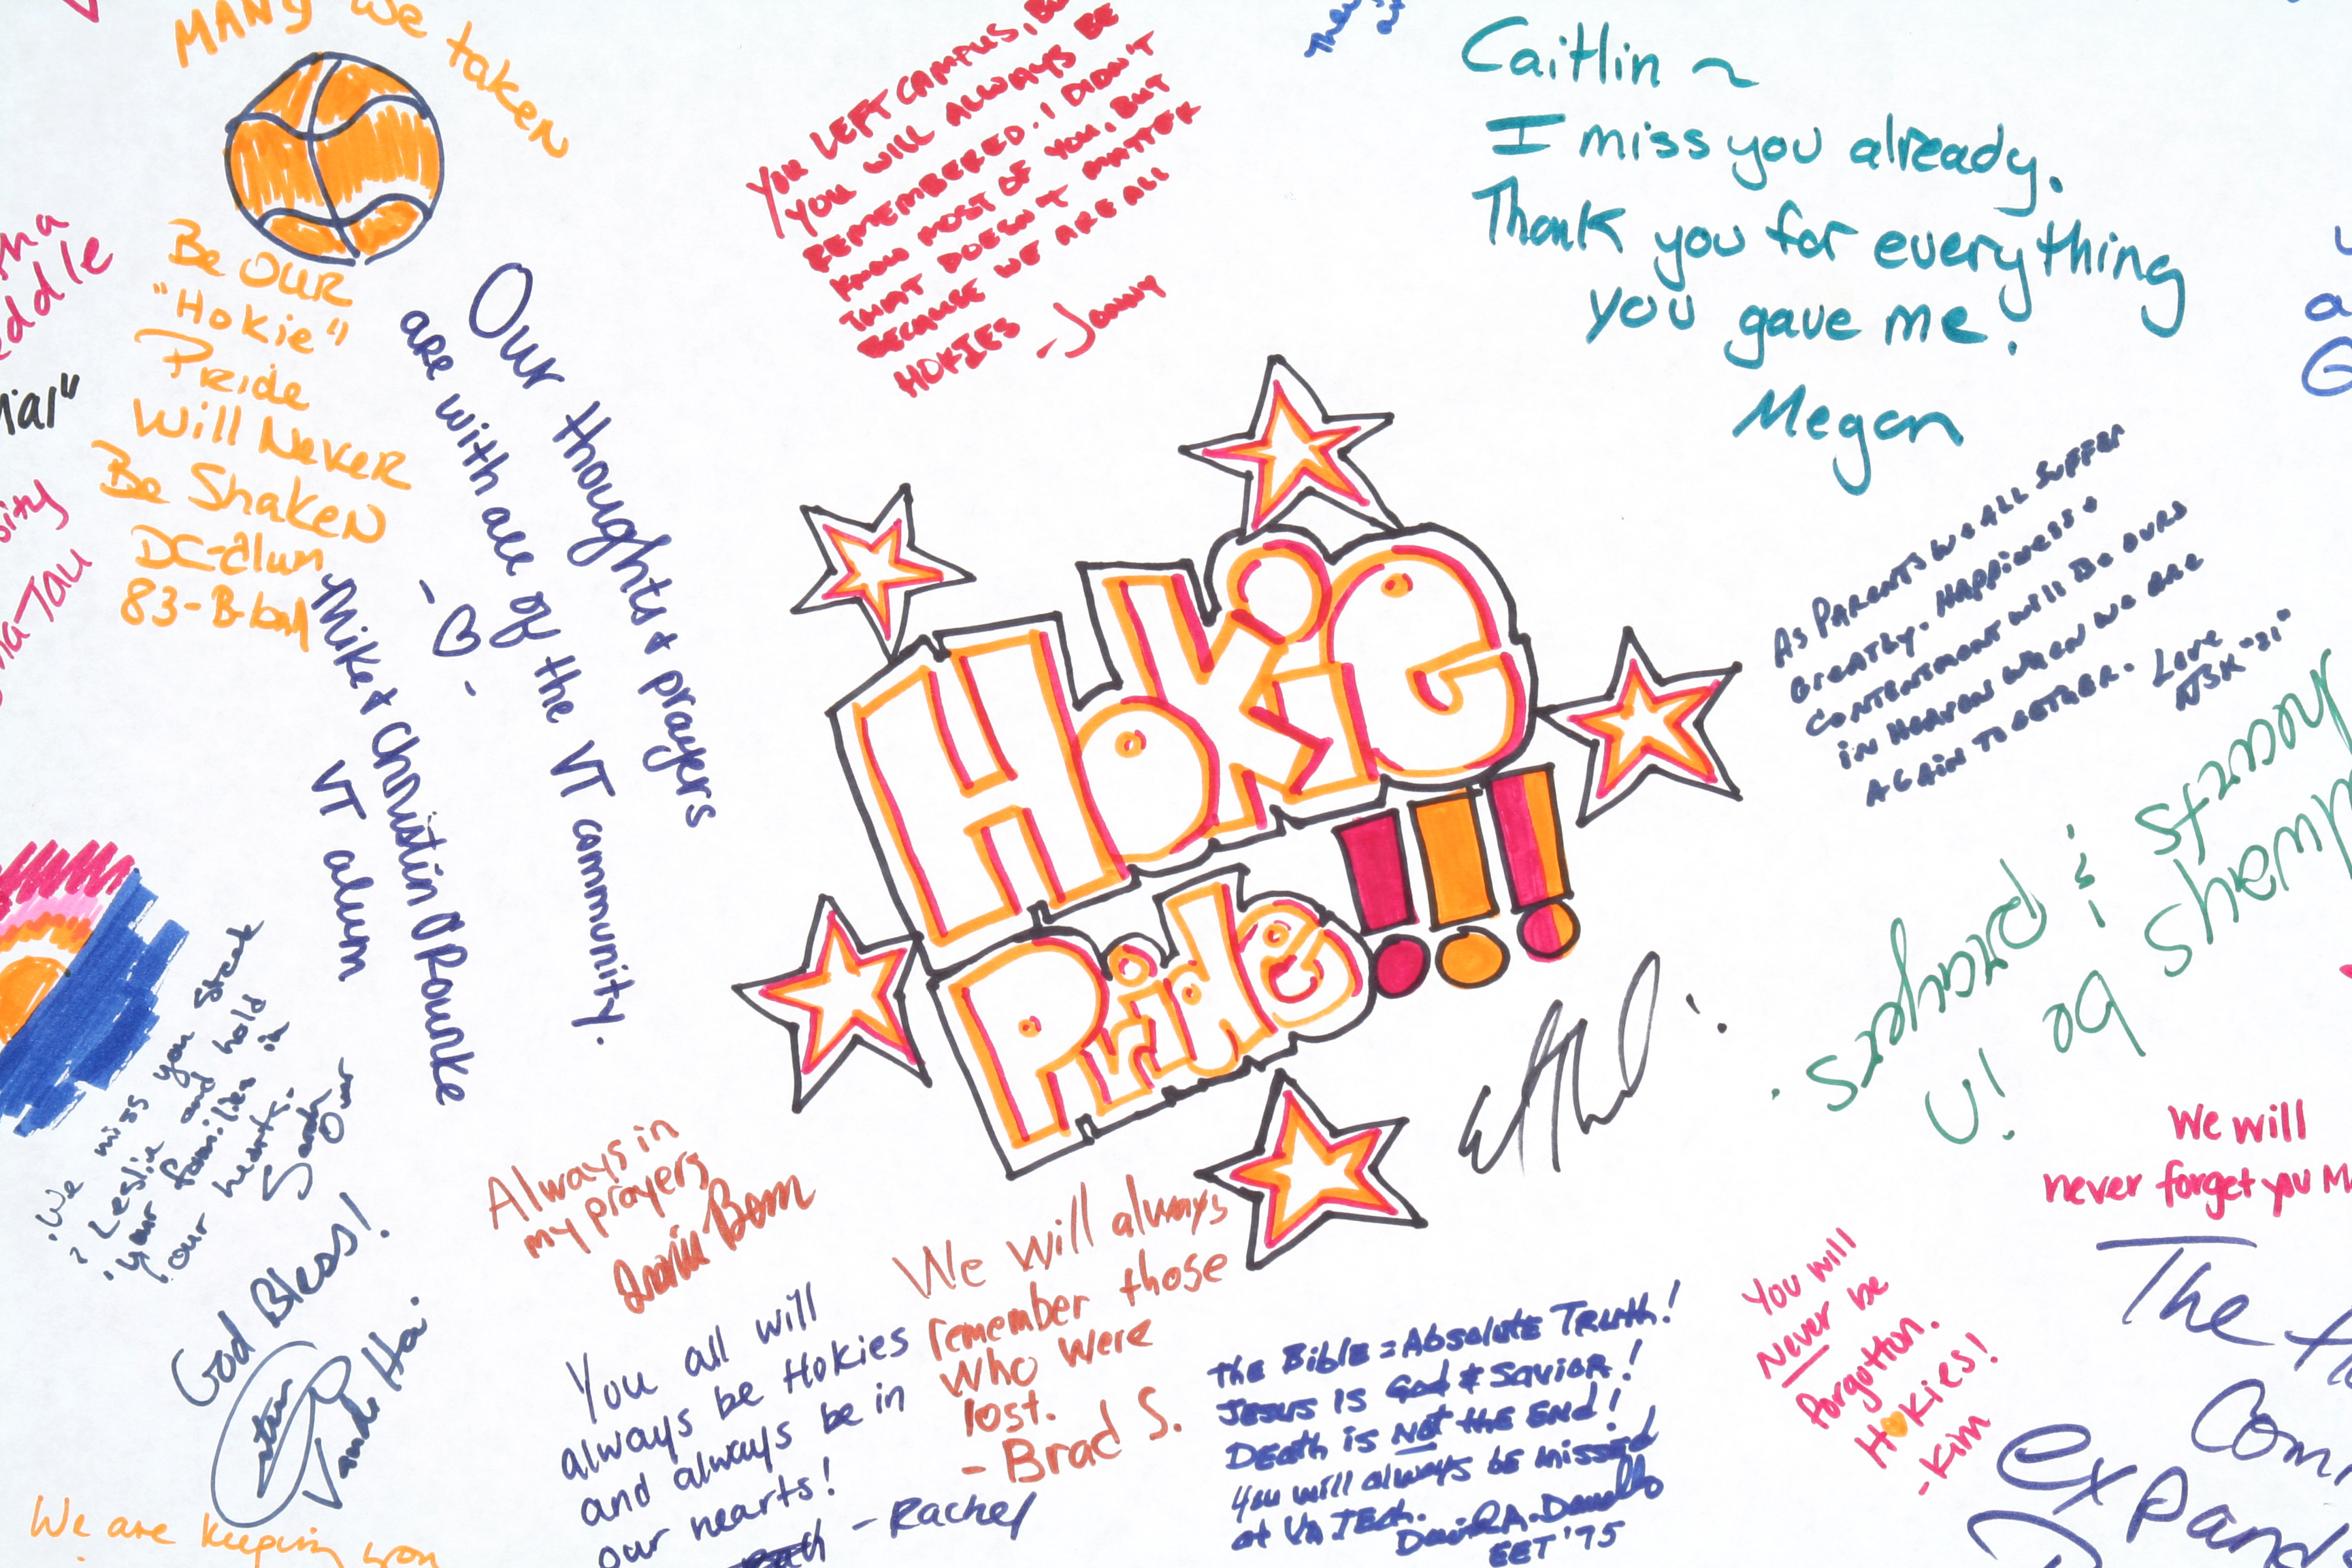 MANY we taken
Be OUR
"Hokie"
Pride
Will Never
Be Shaken
DC-alum
83-B-ball
Our thoughts & prayers
are with all of the VT community.
- ♡ -
Mike & Christin O'Rourke
VT alum
YOU LEFT CAMPUS,
YOU WILL ALWAYS BE
REMEMBERED. I DIDN'T
KNOW MOST OF YOU, BUT
THAT DOESN'T MATTER
BECAUSE WE ARE ALL
HOKIES -Jonny
Caitlin ~
I miss you already.
Thank you for everything
you gave me!
Megan
As Parents we all suffer
Greatly. Happiness &
contentment will be ours
in Heaven when we are
again together. Love
NBK "31"
Hokie
Pride!!!
hearts
always
stay
shall
be
in
& prayers.
We will
never forget you
The
You will
Never be
forgotton.
Hokies!
-Kim
We miss you Steak
& Leslie and hold
your families in
our hearts.
Sarah
God Bless!
Always in
my prayers
We will always
remember those
who were
lost.
- Brad S.
You all will
always be Hokies
and always be in
our hearts!
-Rachel
the Bible = Absolute Truth!
Jesus is God & Savior!
Death is Not the End!
You will always be missed
at VA Tech.
David A.
EET '75
We are keeping you